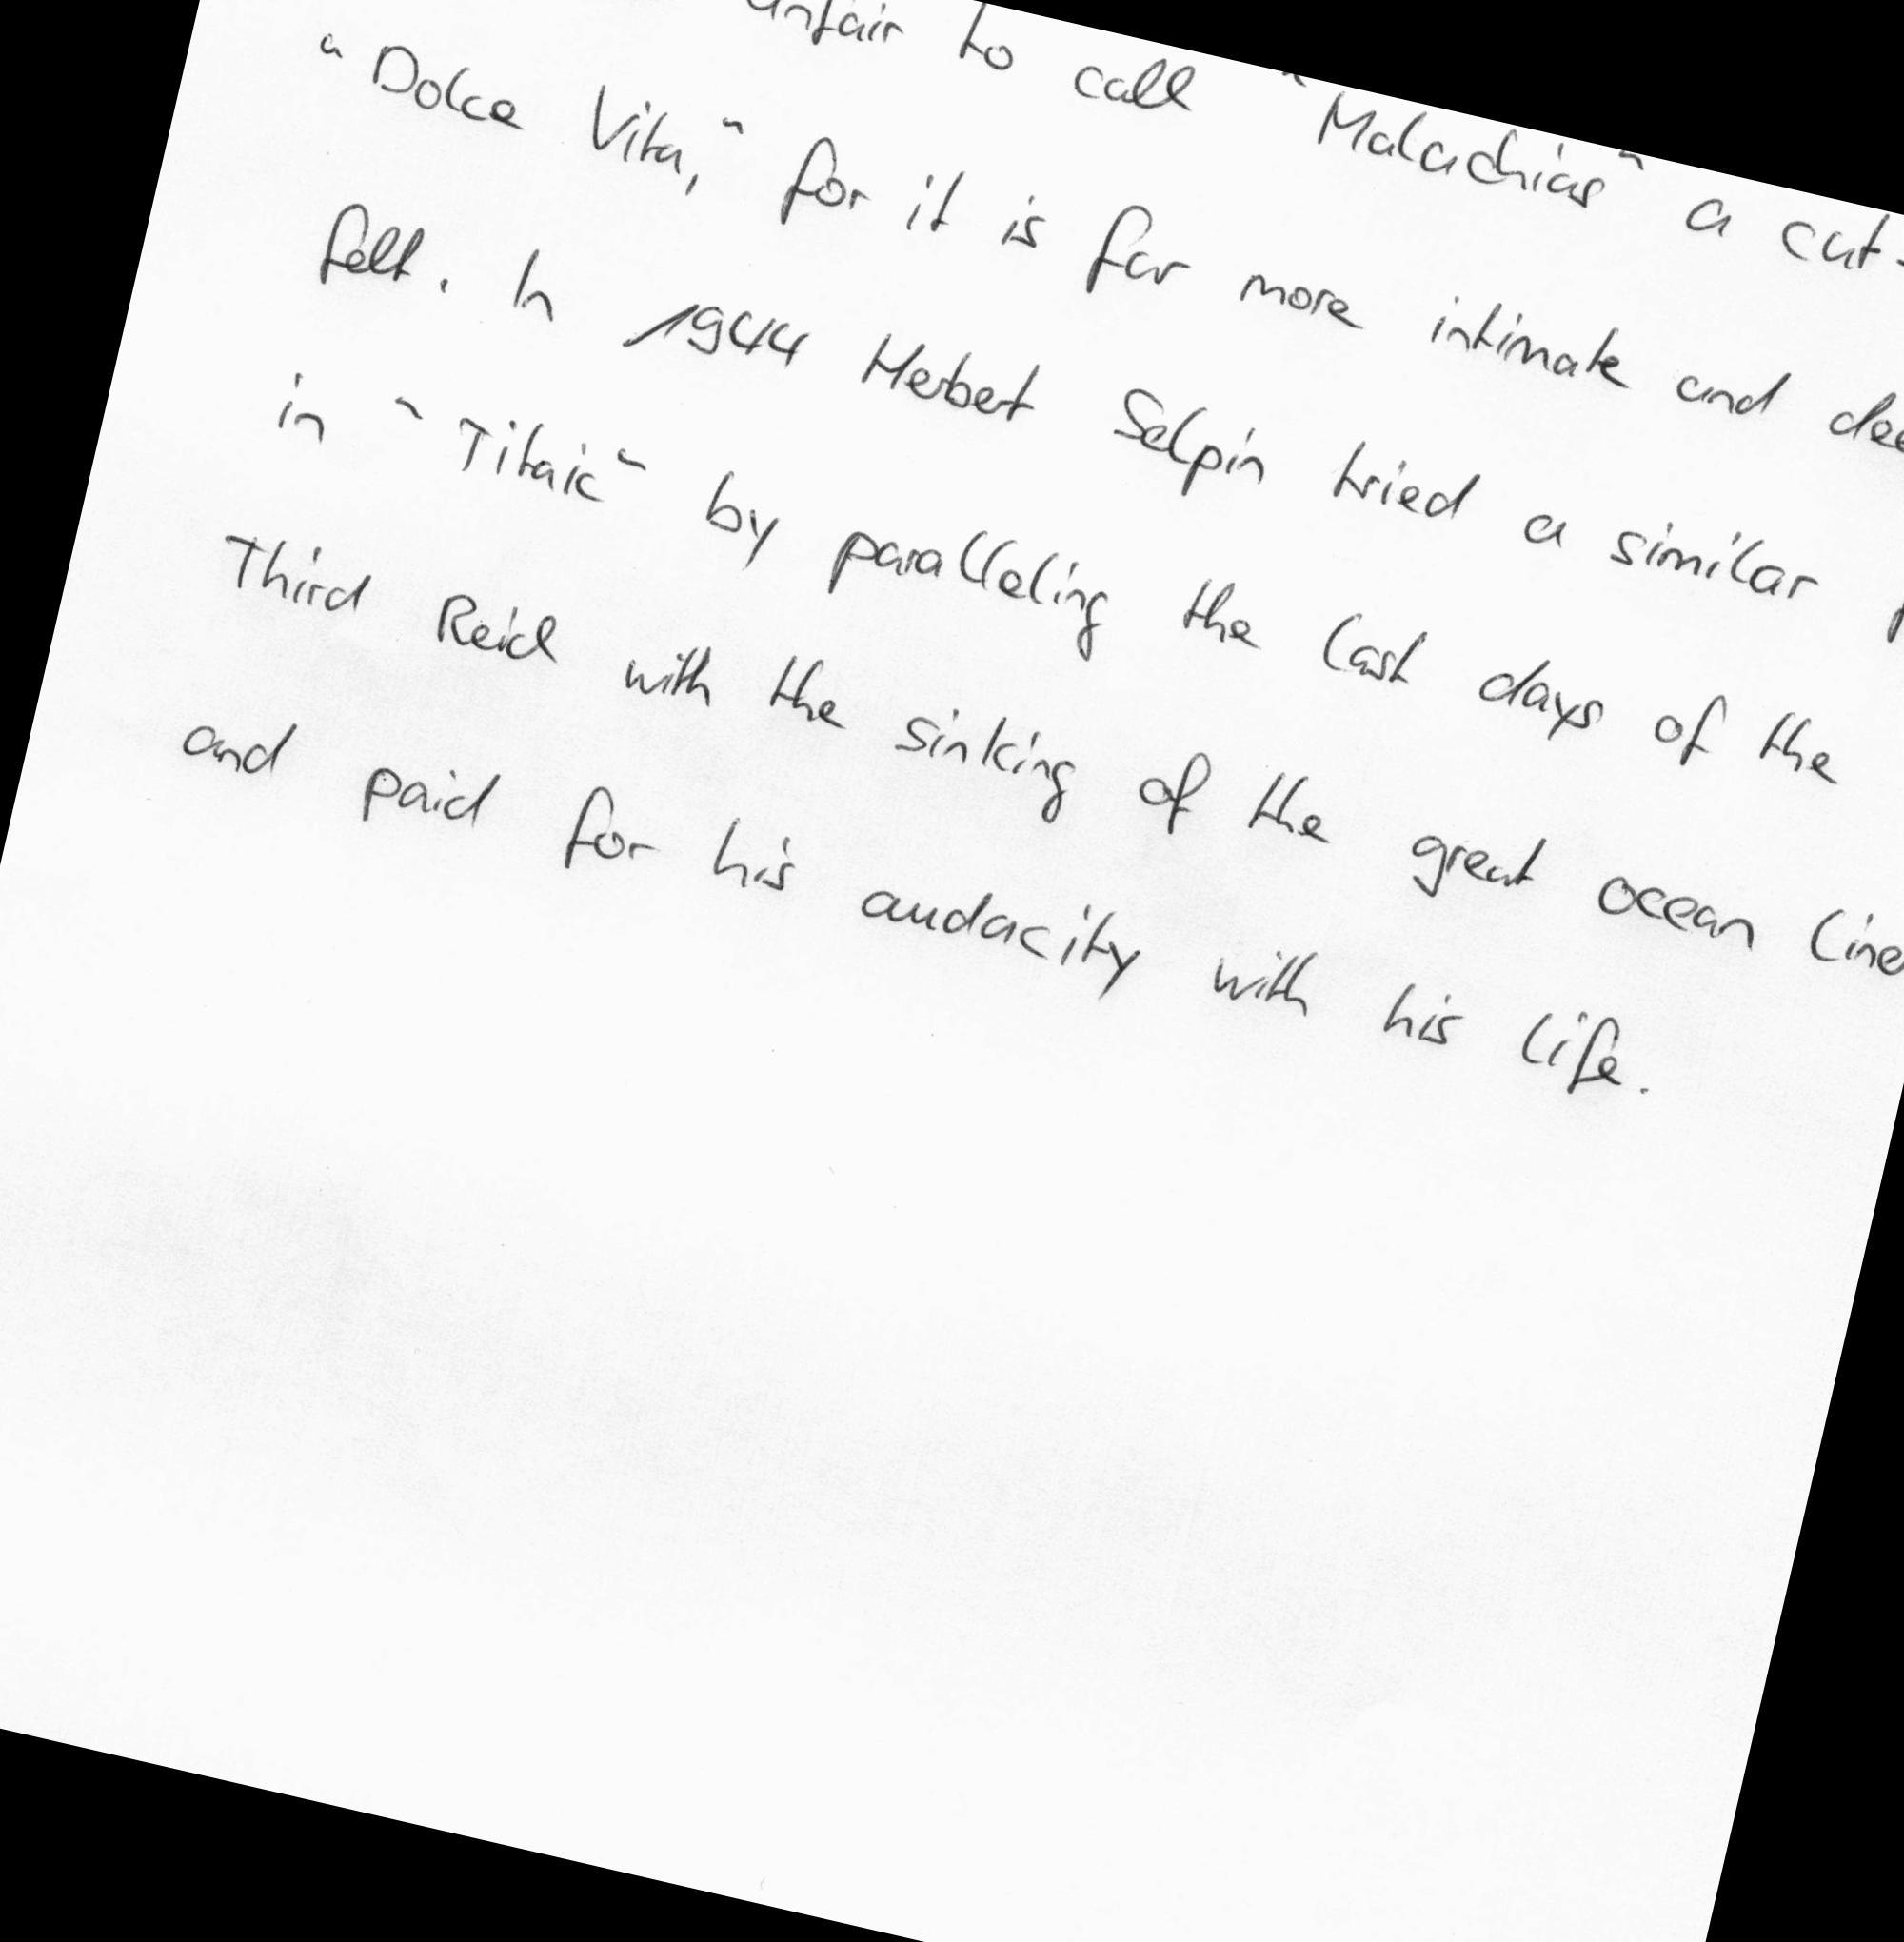 unfair to call "Malachias" a cut-
"Dolce Vita," for it is far more intimate and
felt. In 1944 Herbert Selpin tried a similar
in "Titaic" by paralleling the last days of the
Third Reich with the sinking of the great ocean
and paid for his audacity with his life.